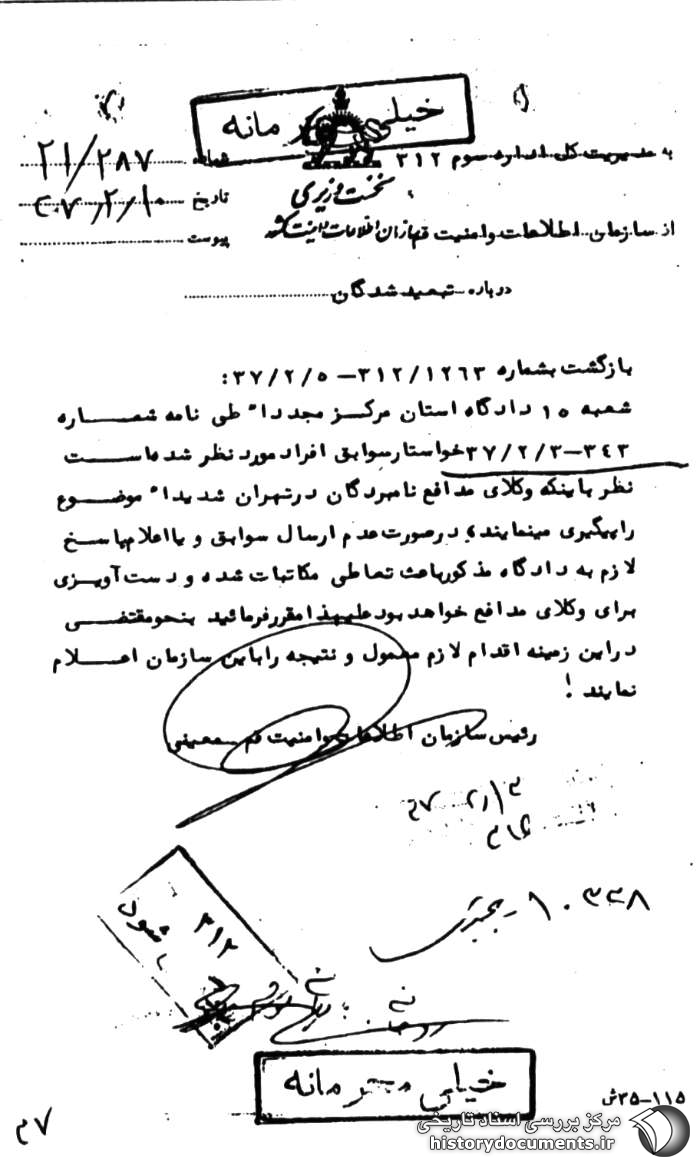 خیلی محرمانه
به مدیریت کل اداره سوم ۳۱۲ شماره ۲۱/۲۸۷
نخست وزیری
تاریخ ۳۷/۲/۱۰
از سازمان اطلاعات و امنیت قم سازمان اطلاعات و امنیت کشور پیوست
درباره - تبعید شدگان
بازگشت بشماره ۳۱۲/۱۲۶۳ – ۳۷/۲/۵ :
شعبه ۱۵ دادگاه استان مرکز مجدداً طی نامه شماره
۳۴۳–۳۷/۲/۳ خواستار سوابق افراد مورد نظر شده است
نظر باینکه وکلای مدافع نامبردگان در تهران شدیداً موضوع
را پیگیری مینمایند، در صورت عدم ارسال سوابق و یا اعلام پاسخ
لازم به دادگاه مذکور باعث تعاطی مکاتبات شده و دست آویزی
برای وکلای مدافع خواهد بود علیهذا مقرر فرمائید بنحو مقتضی
در این زمینه اقدام لازم معمول و نتیجه را باین سازمان اعلام
نمایند !
رئیس سازمان اطلاعات و امنیت قم – معینی
۳۱۲
۱۰۳۳۸
خیلی محرمانه
۱۱۵–۳۵ش
مرکز بررسی اسناد تاریخی
historydocuments.ir